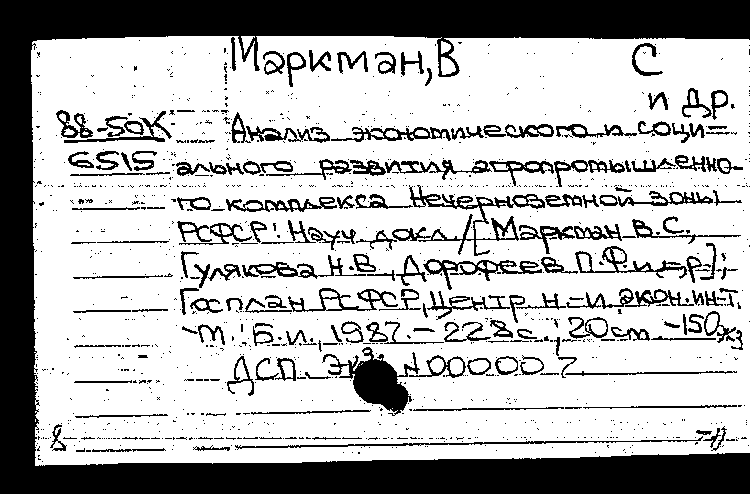 Маркман, В С
и др.
88-50К Анализ экономического и соци-
6515 ального развития агропромышленно-
го комплекса Нечерноземной зоны
РСФСР: Науч. докл./[Маркман В.С.,
Гулякова Н.В., Дорофеев П.Ф. и др];
Госплан РСФСР, Центр. н.-и. экон. ин-т.
-М.: Б.и., 1987. - 228 с.; 20 см. -150 экз
ДСП. Экз. N 000007.
8